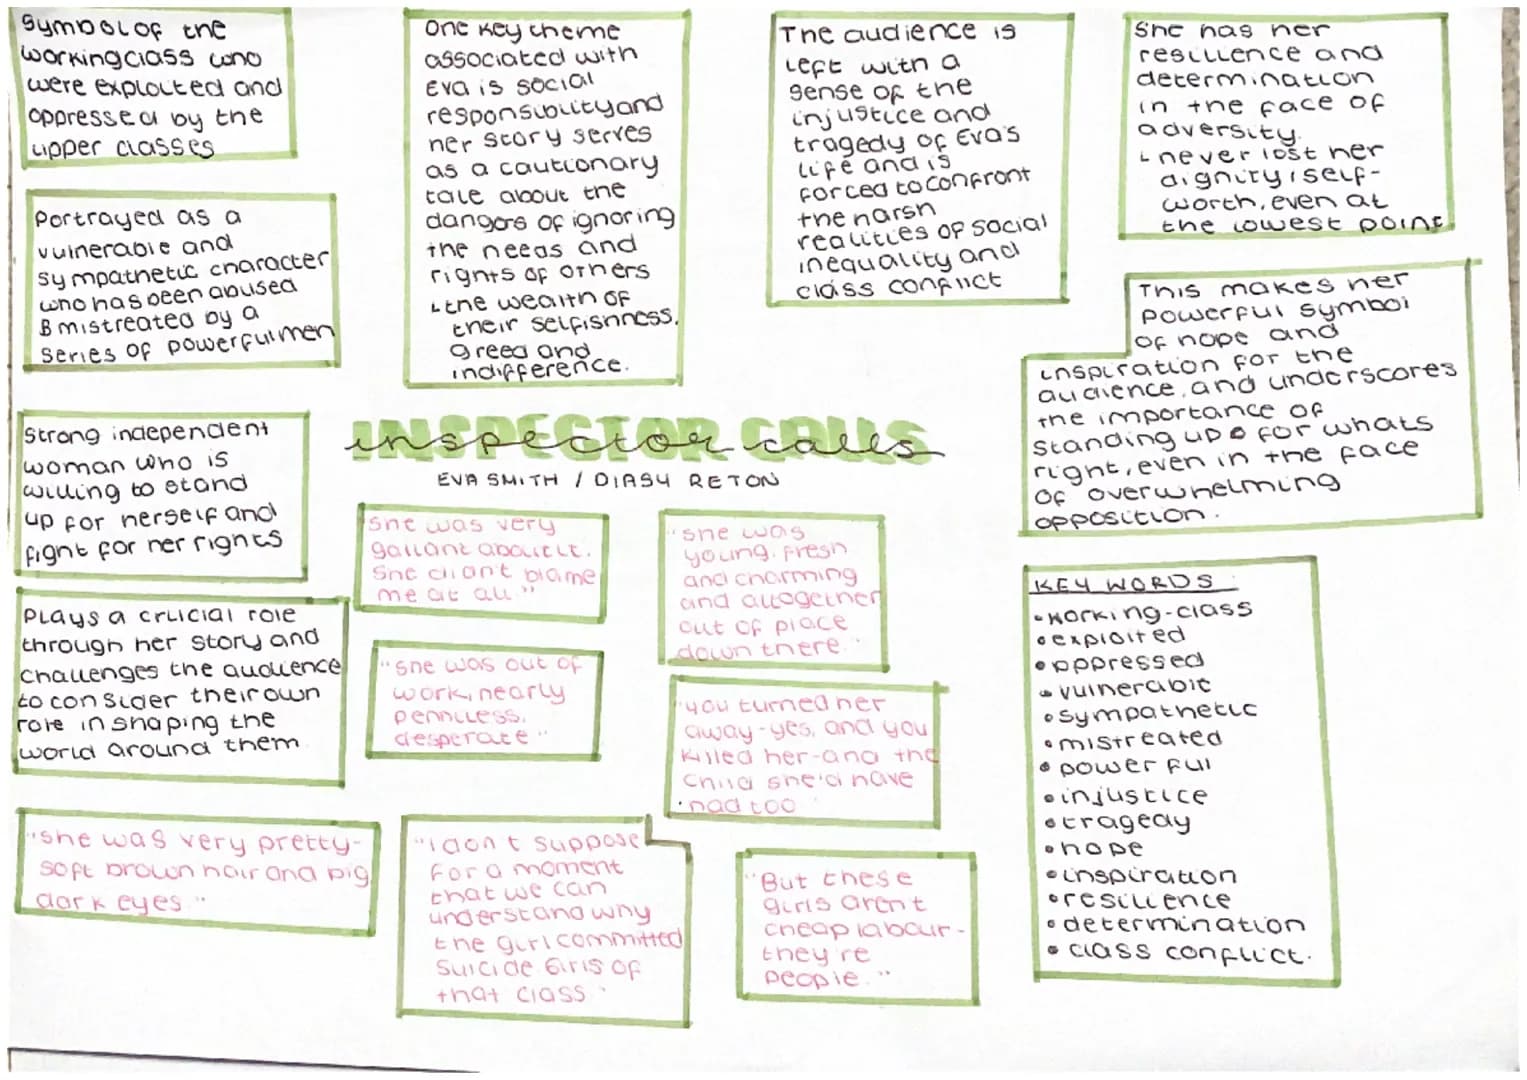 Symbol of the
working class who
were exploited and
oppressed by the
upper classes
Portrayed as a
vulnerable and
sympathetic character
who has been abused
& mistreated by a
series of powerful men
Strong independent
woman who is
willing to stand
up for herself and
fight for her rights
Plays a crucial role
through her story and
challenges the audience
to consider their own
role in shaping the
world around them
"she was very pretty-
soft brown hair and big
dark eyes."
One key theme
associated with
Eva is social
responsibility and
her story serves
as a cautionary
tale about the
dangers of ignoring
the needs and
rights of others
↳ the wealth of
their selfishness,
greed and
indifference.
The audience is
left with a
sense of the
injustice and
tragedy of Eva's
life and is
forced to confront
the harsh
realities of social
inequality and
class conflict
She has her
resilience and
determination
in the face of
adversity.
↳ never lost her
dignity, self-
worth, even at
the lowest point
This makes her
powerful symbol
of hope and
inspiration for the
audience, and underscores
the importance of
standing up for whats
right, even in the face
of overwhelming
opposition.
INSPECTOR CALLS
inspector calls
EVA SMITH / DIASY RETON
she was very
gallant about it.
She didn't blame
me at all."
"she was
young, fresh
and charming
and altogether
out of place
down there."
"she was out of
work, nearly
penniless,
desperate"
"you turned her
away-yes, and you
killed her-and the
child she'd have
had too"
"I don't suppose
for a moment
that we can
understand why
the girl committed
suicide. Girls of
that class"
"But these
girls aren't
cheap labour-
they're
people."
KEY WORDS:
• working-class
• exploited
• oppressed
• vulnerable
• sympathetic
• mistreated
• powerful
• injustice
• tragedy
• hope
• inspiration
• resilience
• determination
• class conflict.